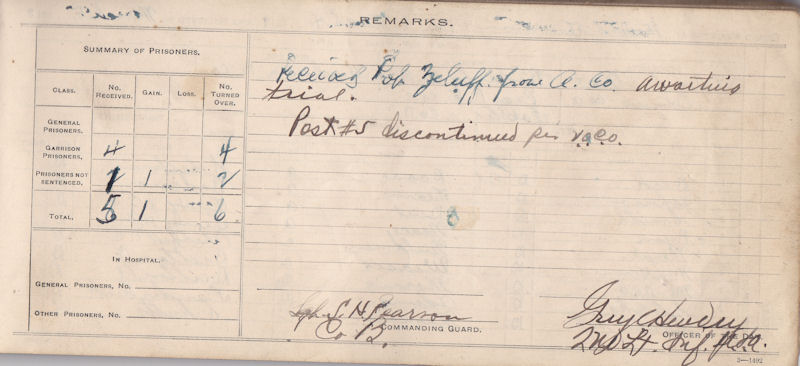 REMARKS.
SUMMARY OF PRISONERS.
CLASS. NO. RECEIVED. GAIN. LOSS. NO. TURNED OVER.
GENERAL PRISONERS.
GARRISON PRISONERS, 4 4
PRISONERS NOT SENTENCED, 1 1 2
TOTAL, 5 1 6
IN HOSPITAL.
GENERAL PRISONERS, NO.
OTHER PRISONERS, NO.
Received Zeluff from A. Co. awaiting
trial.
Post #5 discontinued per
S. H. Pearson
Co B.
COMMANDING GUARD.
OFFICER OF THE DAY.
2nd Lt. Inf.
3—1402